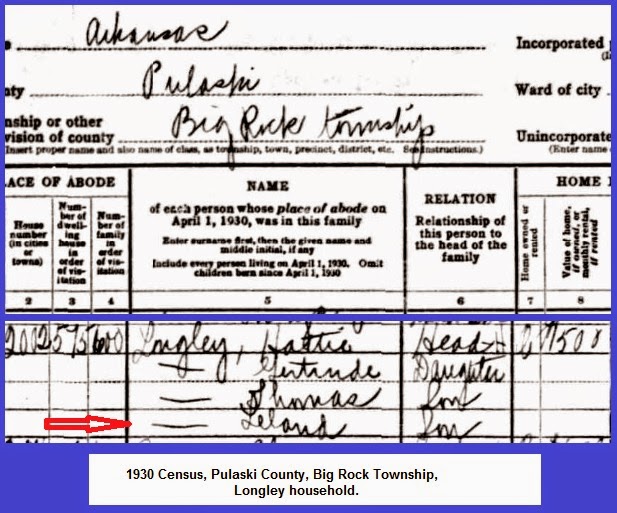 Arkansas
Incorporated
Pulaski
Ward of city
nship or other
vision of county Big Rock township
Unincorpora
Insert proper name and also name of class, as township, town, precinct, district, etc. See instructions.)
(Enter name
ACE OF ABODE
House number (in cities or towns)
2
Num-
ber of
dwell-
ing
house
in order
of vis-
itation
3
Num-
ber of
family
in
order
of vis-
itation
4
NAME
of each person whose place of abode on
April 1, 1930, was in this family
Enter surname first, then the given name and
middle initial, if any
Include every person living on April 1, 1930. Omit
children born since April 1, 1930
5
RELATION
Relationship of
this person to
the head of the
family
6
HOME
Home owned or
rented
7
Value of home,
if owned, or
monthly rental,
if rented
8
2002 575 600 Longley, Hattie Head
— Gertrude Daughter
— Thomas Son
— Leland Son
1930 Census, Pulaski County, Big Rock Township,
Longley household.